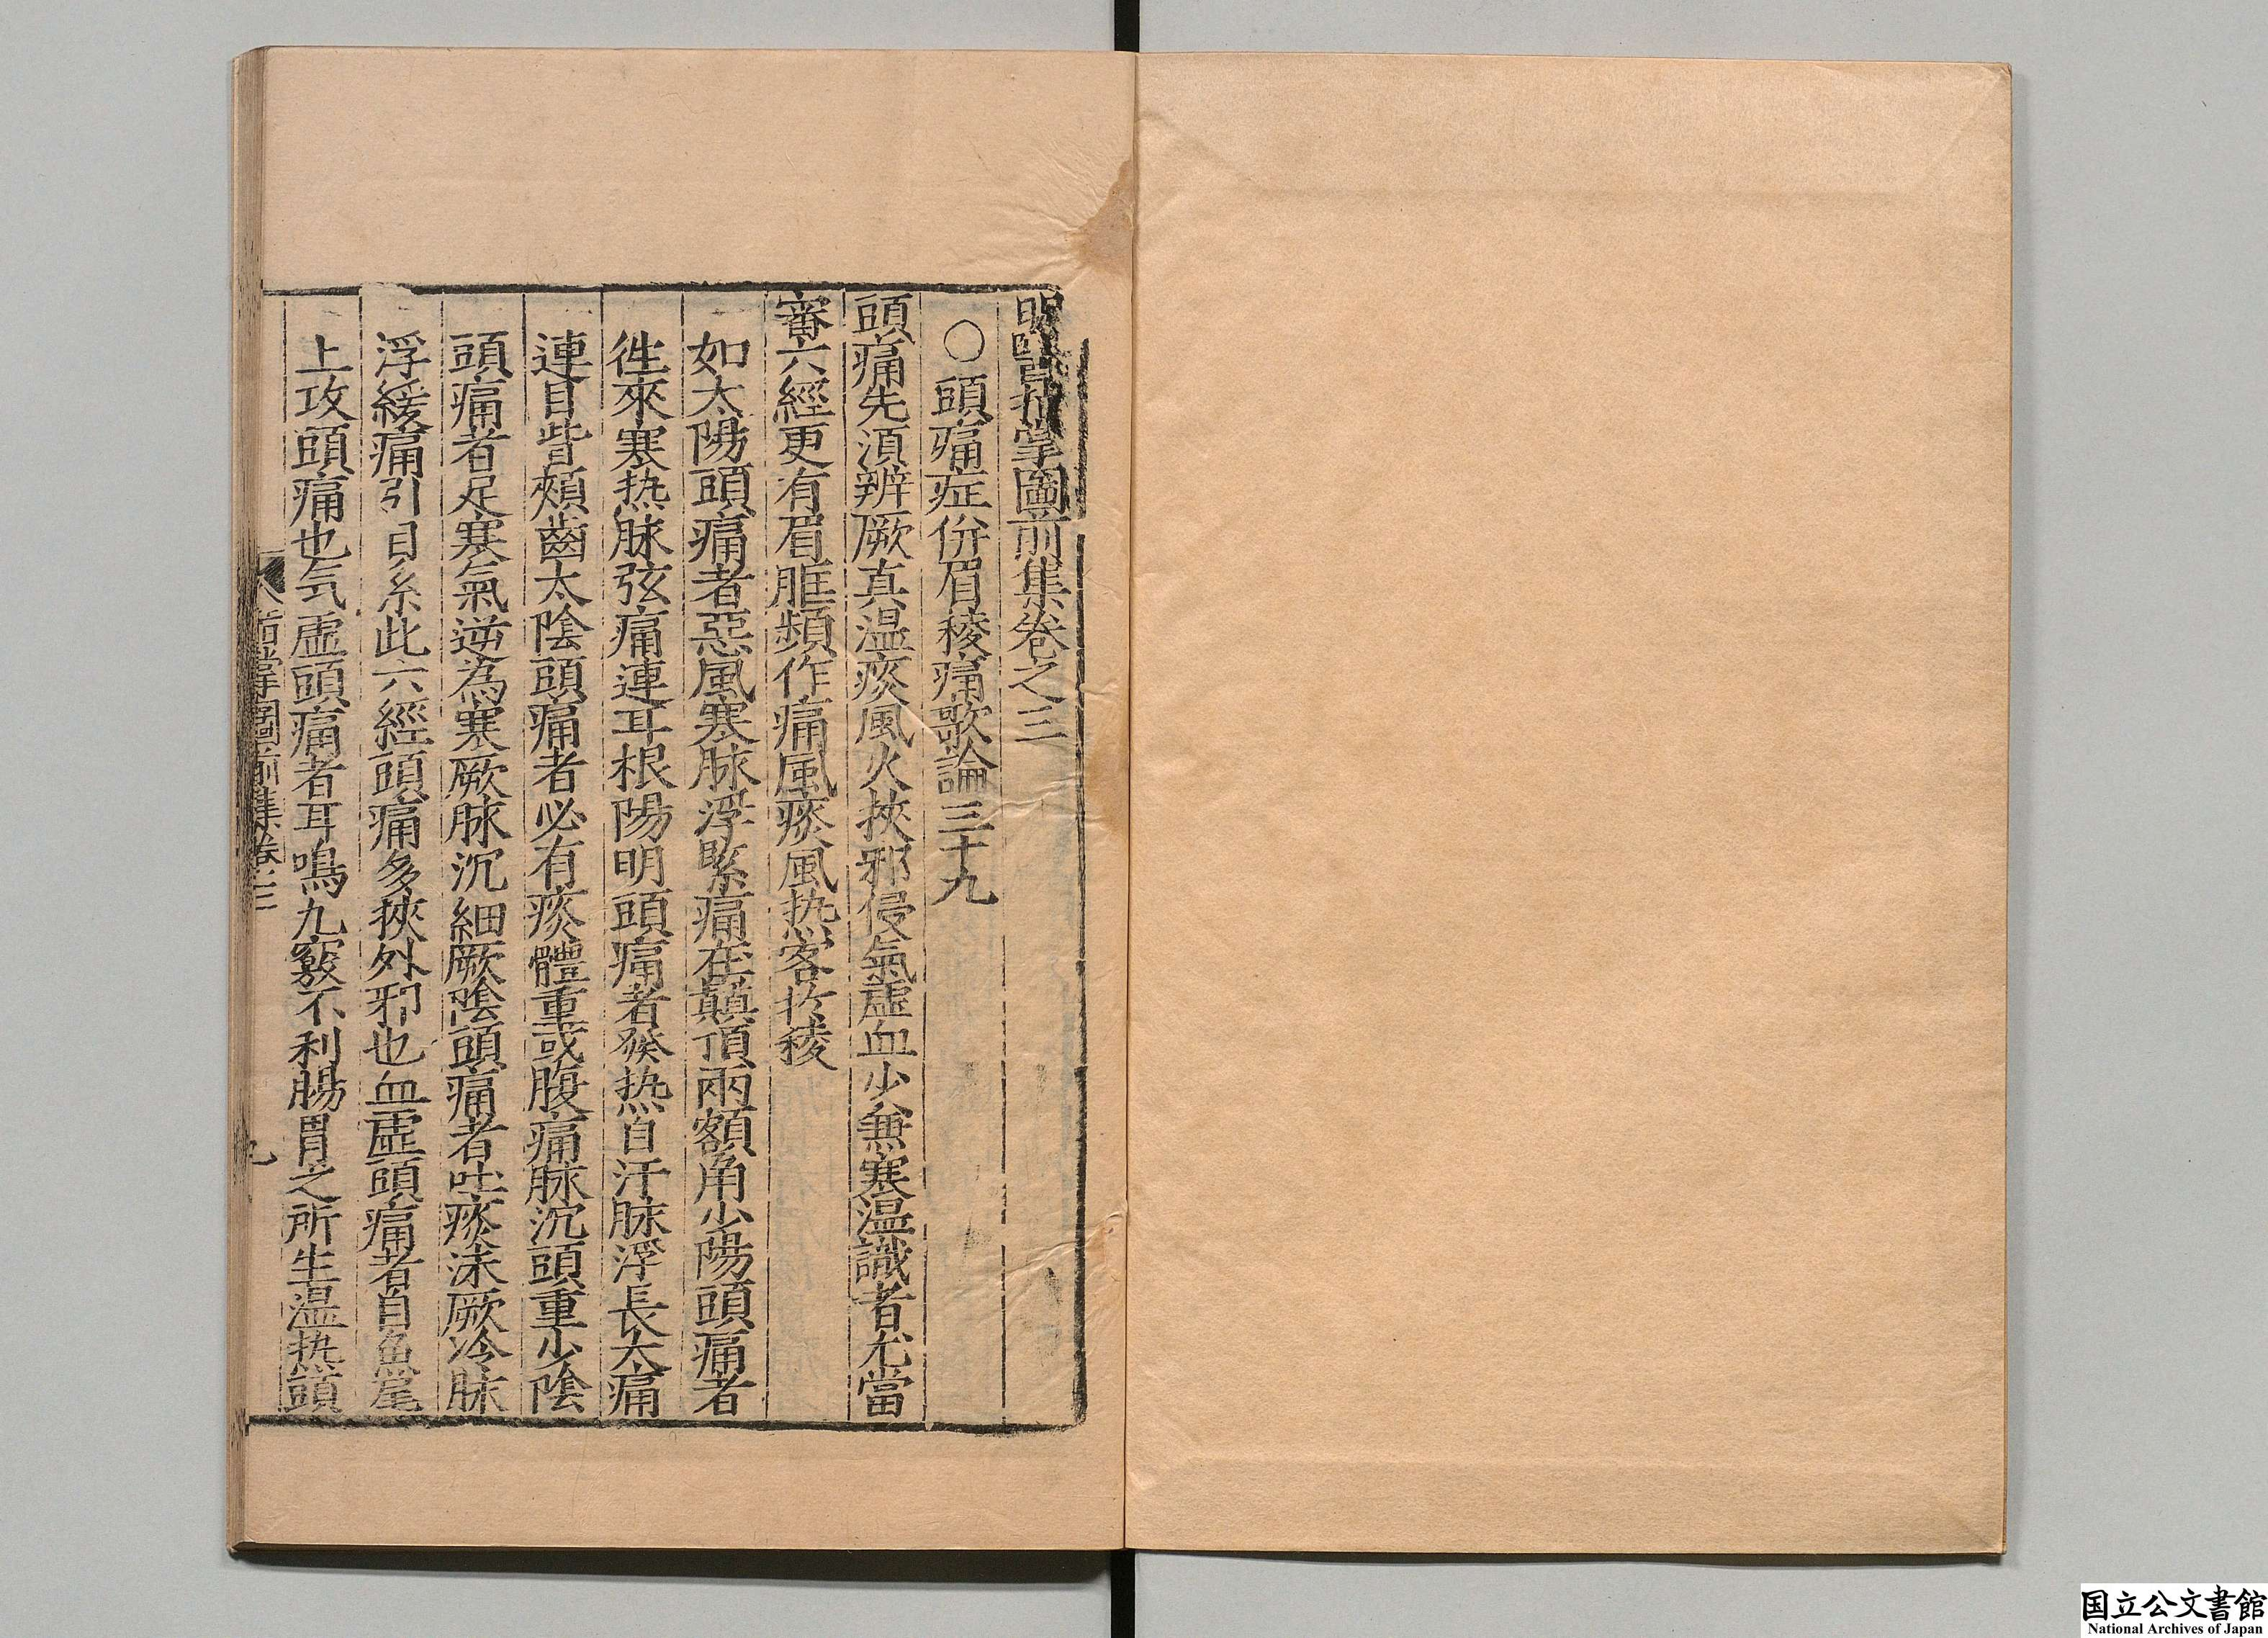 明醫指掌圖前集卷之三
○頭痛症併眉稜痛歌論三十九
頭痛先湏辨厥真温痰風火挾邪侵氣虛血少無寒温識者尤當
審六經更有眉眶頻作痛風痰風热客扵稜
如太陽頭痛者惡風寒脉浮緊痛在巔頂兩額角少陽頭痛者
徃來寒热脉弦痛連耳根陽明頭痛者發热自汗脉浮長大痛
連目眥頰齒太陰頭痛者必有痰體重或腹痛脉沉頭重少陰
頭痛者足寒氣逆為寒厥脉沉細厥陰頭痛者吐痰沫厥冷脉
浮緩痛引目系此六經頭痛多挾外邪也血虛頭痛者自魚尾
上攻頭痛也気虛頭痛者耳鳴九竅不利腸胃之所生温热頭
指掌圖前集卷三
国立公文書館
National Archives of Japan